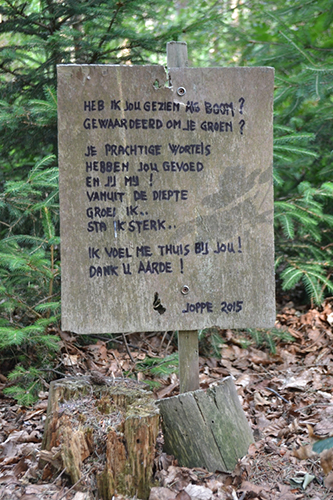 HEB IK JOU GEZIEN ALS BOOM?
GEWAARDEERD OM JE GROEN?
JE PRACHTIGE WORTELS
HEBBEN JOU GEVOED
EN JIJ MIJ!
VANUIT DE DIEPTE
GROEI IK..
STA IK STERK..
IK VOEL ME THUIS BIJ JOU!
DANK U AARDE!
JOPPE 2015